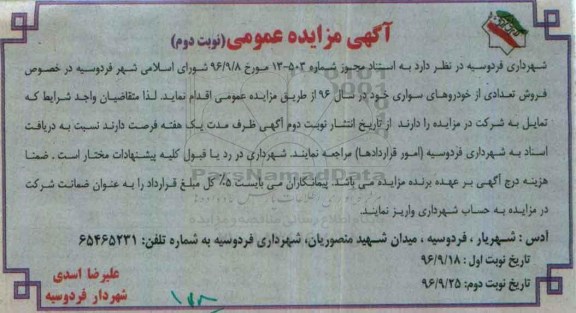 آگهی مزایده عمومی (نوبت دوم)
شهرداری فردوسیه در نظر دارد به استناد مجوز شماره ۵۰۳-۱۳ مورخ ۹۶/۹/۸ شورای اسلامی شهر فردوسیه در خصوص
فروش تعدادی از خودروهای سواری خود در سال ۹۶ از طریق مزایده عمومی اقدام نماید. لذا متقاضیان واجد شرایط که
تمایل به شرکت در مزایده را دارند از تاریخ انتشار نوبت دوم آگهی ظرف مدت یک هفته فرصت دارند نسبت به دریافت
اسناد به شهرداری فردوسیه (امور قراردادها) مراجعه نمایند. شهرداری در رد یا قبول کلیه پیشنهادات مختار است. ضمنا
هزینه درج آگهی بر عهده برنده مزایده می باشد. پیمانکاران می بایست ۵٪ کل مبلغ قرارداد را به عنوان ضمانت شرکت
در مزایده به حساب شهرداری واریز نمایند.
آدس : شهریار ، فردوسیه ، میدان شهید منصوریان، شهرداری فردوسیه به شماره تلفن: ۶۵۴۶۵۲۳۱
تاریخ نوبت اول : ۹۶/۹/۱۸
تاریخ نوبت دوم: ۹۶/۹/۲۵
علیرضا اسدی
شهردار فردوسیه
ParsNamadData